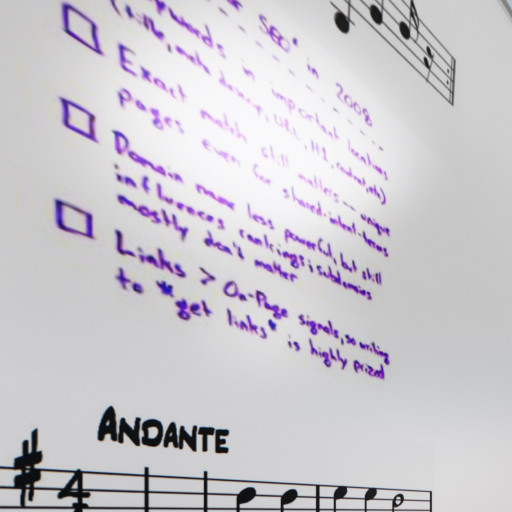 for SEO" in 2008
keywords in important locations
(title, meta descrip, URL, H1, content, etc)
Exact match still matters — unique
pages even for shared-intent-terms
Domain name less powerful, but still
influences rankings; subdomains
mostly don't matter
Links > On-Page signals, so writing
to "get links" is highly prized
ANDANTE
4